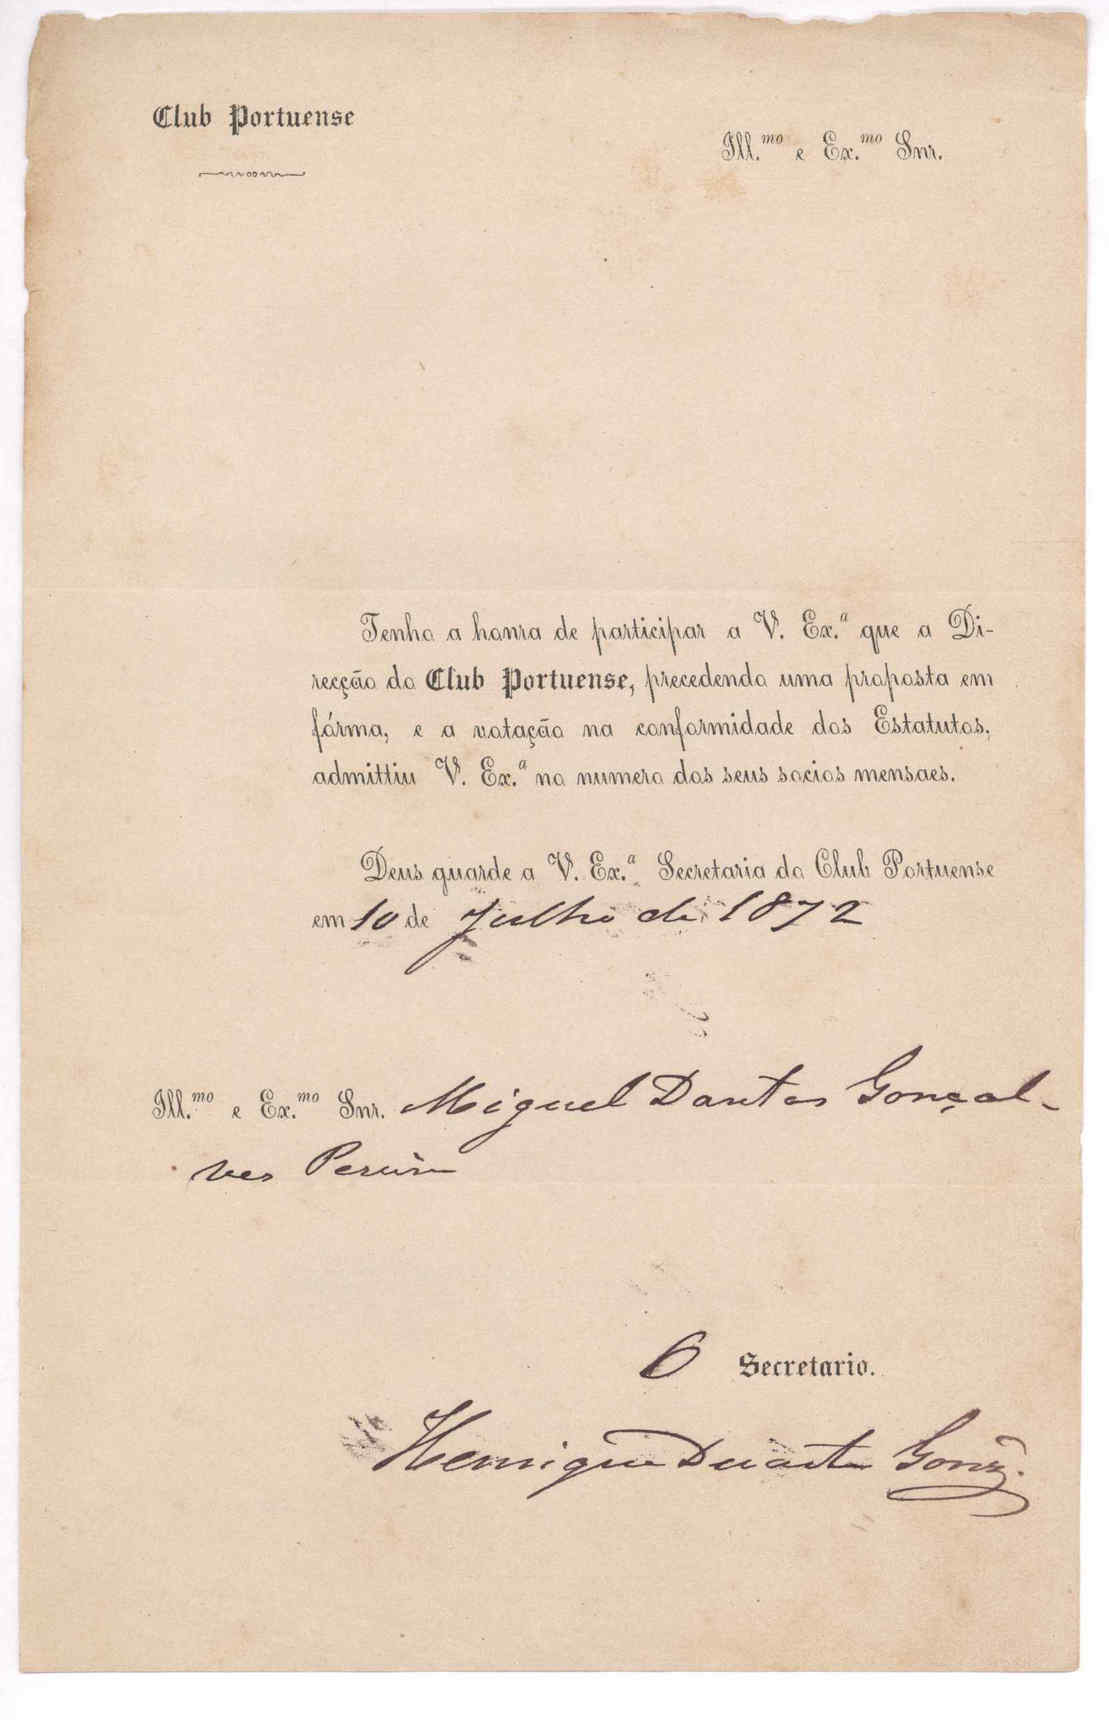 Club Portuense
Ill.mo e Ex.mo Snr.
Tenho a honra de participar a V. Ex.a que a Di-
recção do Club Portuense, precedendo uma proposta em
fórma, e a votação na conformidade dos Estatutos,
admittiu V. Ex.a no numero dos seus socios mensaes.
Deus guarde a V. Ex.a Secretaria do Club Portuense
em 10 de Julho de 1872
Ill.mo e Ex.mo Snr. Miguel Dantas Gonçal-
ves Pereira
O Secretario.
Henrique Duarte